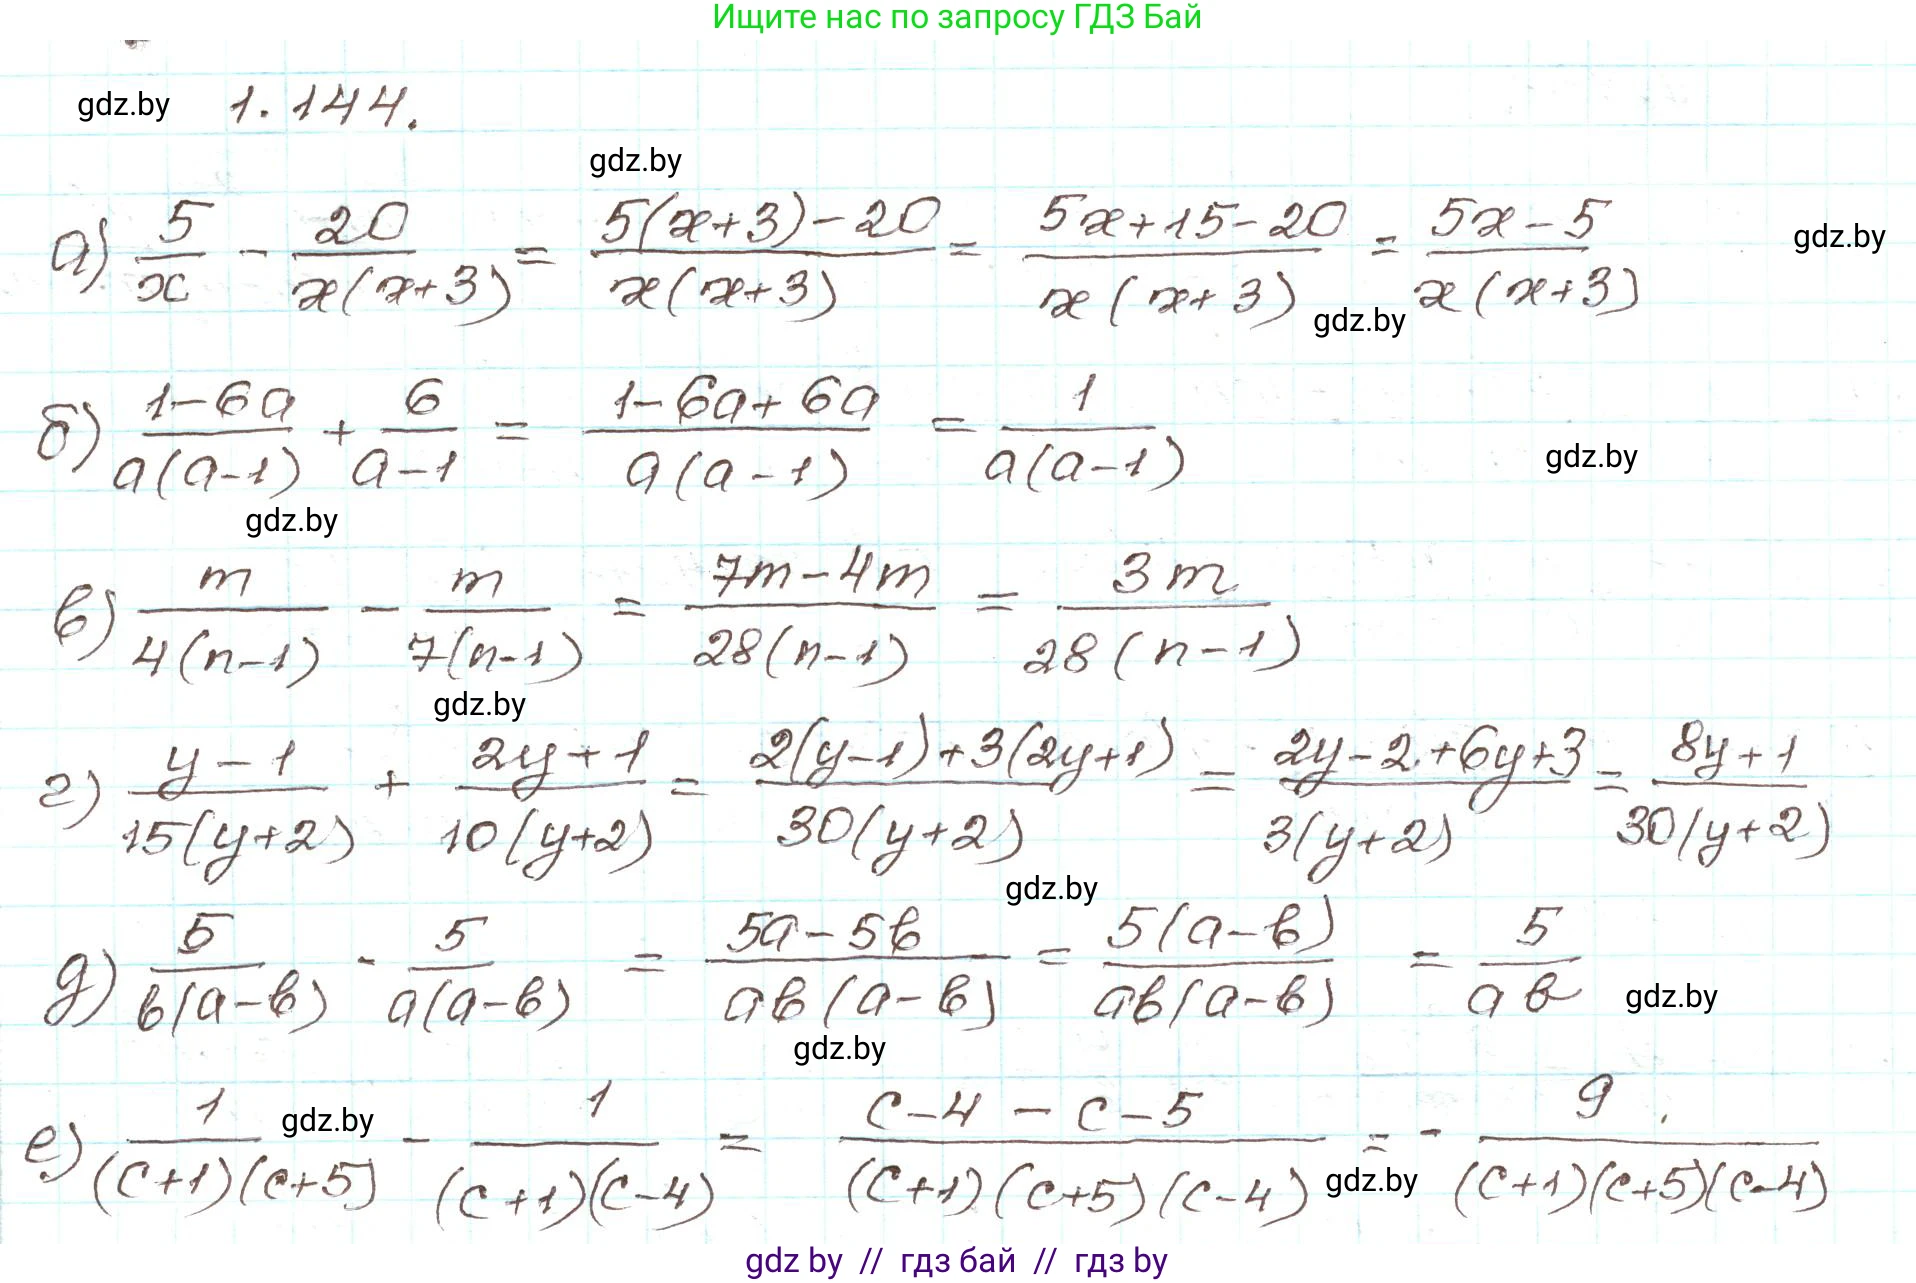 Ищите нас по запросу ГДЗ Бай
gdz.by 1.144.
gdz.by
а) 5/x - 20/x(x+3) = 5(x+3)-20/x(x+3) = 5x+15-20/x(x+3) = 5x-5/x(x+3) gdz.by
gdz.by
б) 1-6a/a(a-1) + 6/a-1 = 1-6a+6a/a(a-1) = 1/a(a-1) gdz.by
gdz.by
в) m/4(n-1) - m/7(n-1) = 7m-4m/28(n-1) = 3m/28(n-1)
gdz.by
г) y-1/15(y+2) + 2y+1/10(y+2) = 2(y-1)+3(2y+1)/30(y+2) = 2y-2+6y+3/3(y+2) = 8y+1/30(y+2)
gdz.by
д) 5/в(a-в) - 5/a(a-в) = 5a-5в/aв(a-в) = 5(a-в)/aв(a-в) = 5/aв gdz.by
gdz.by
е) 1/(c+1)(c+5) gdz.by - 1/(c+1)(c-4) = c-4-c-5/(c+1)(c+5)(c-4) gdz.by = - 9/(c+1)(c+5)(c-4)
gdz by // гдз бай // гдз by